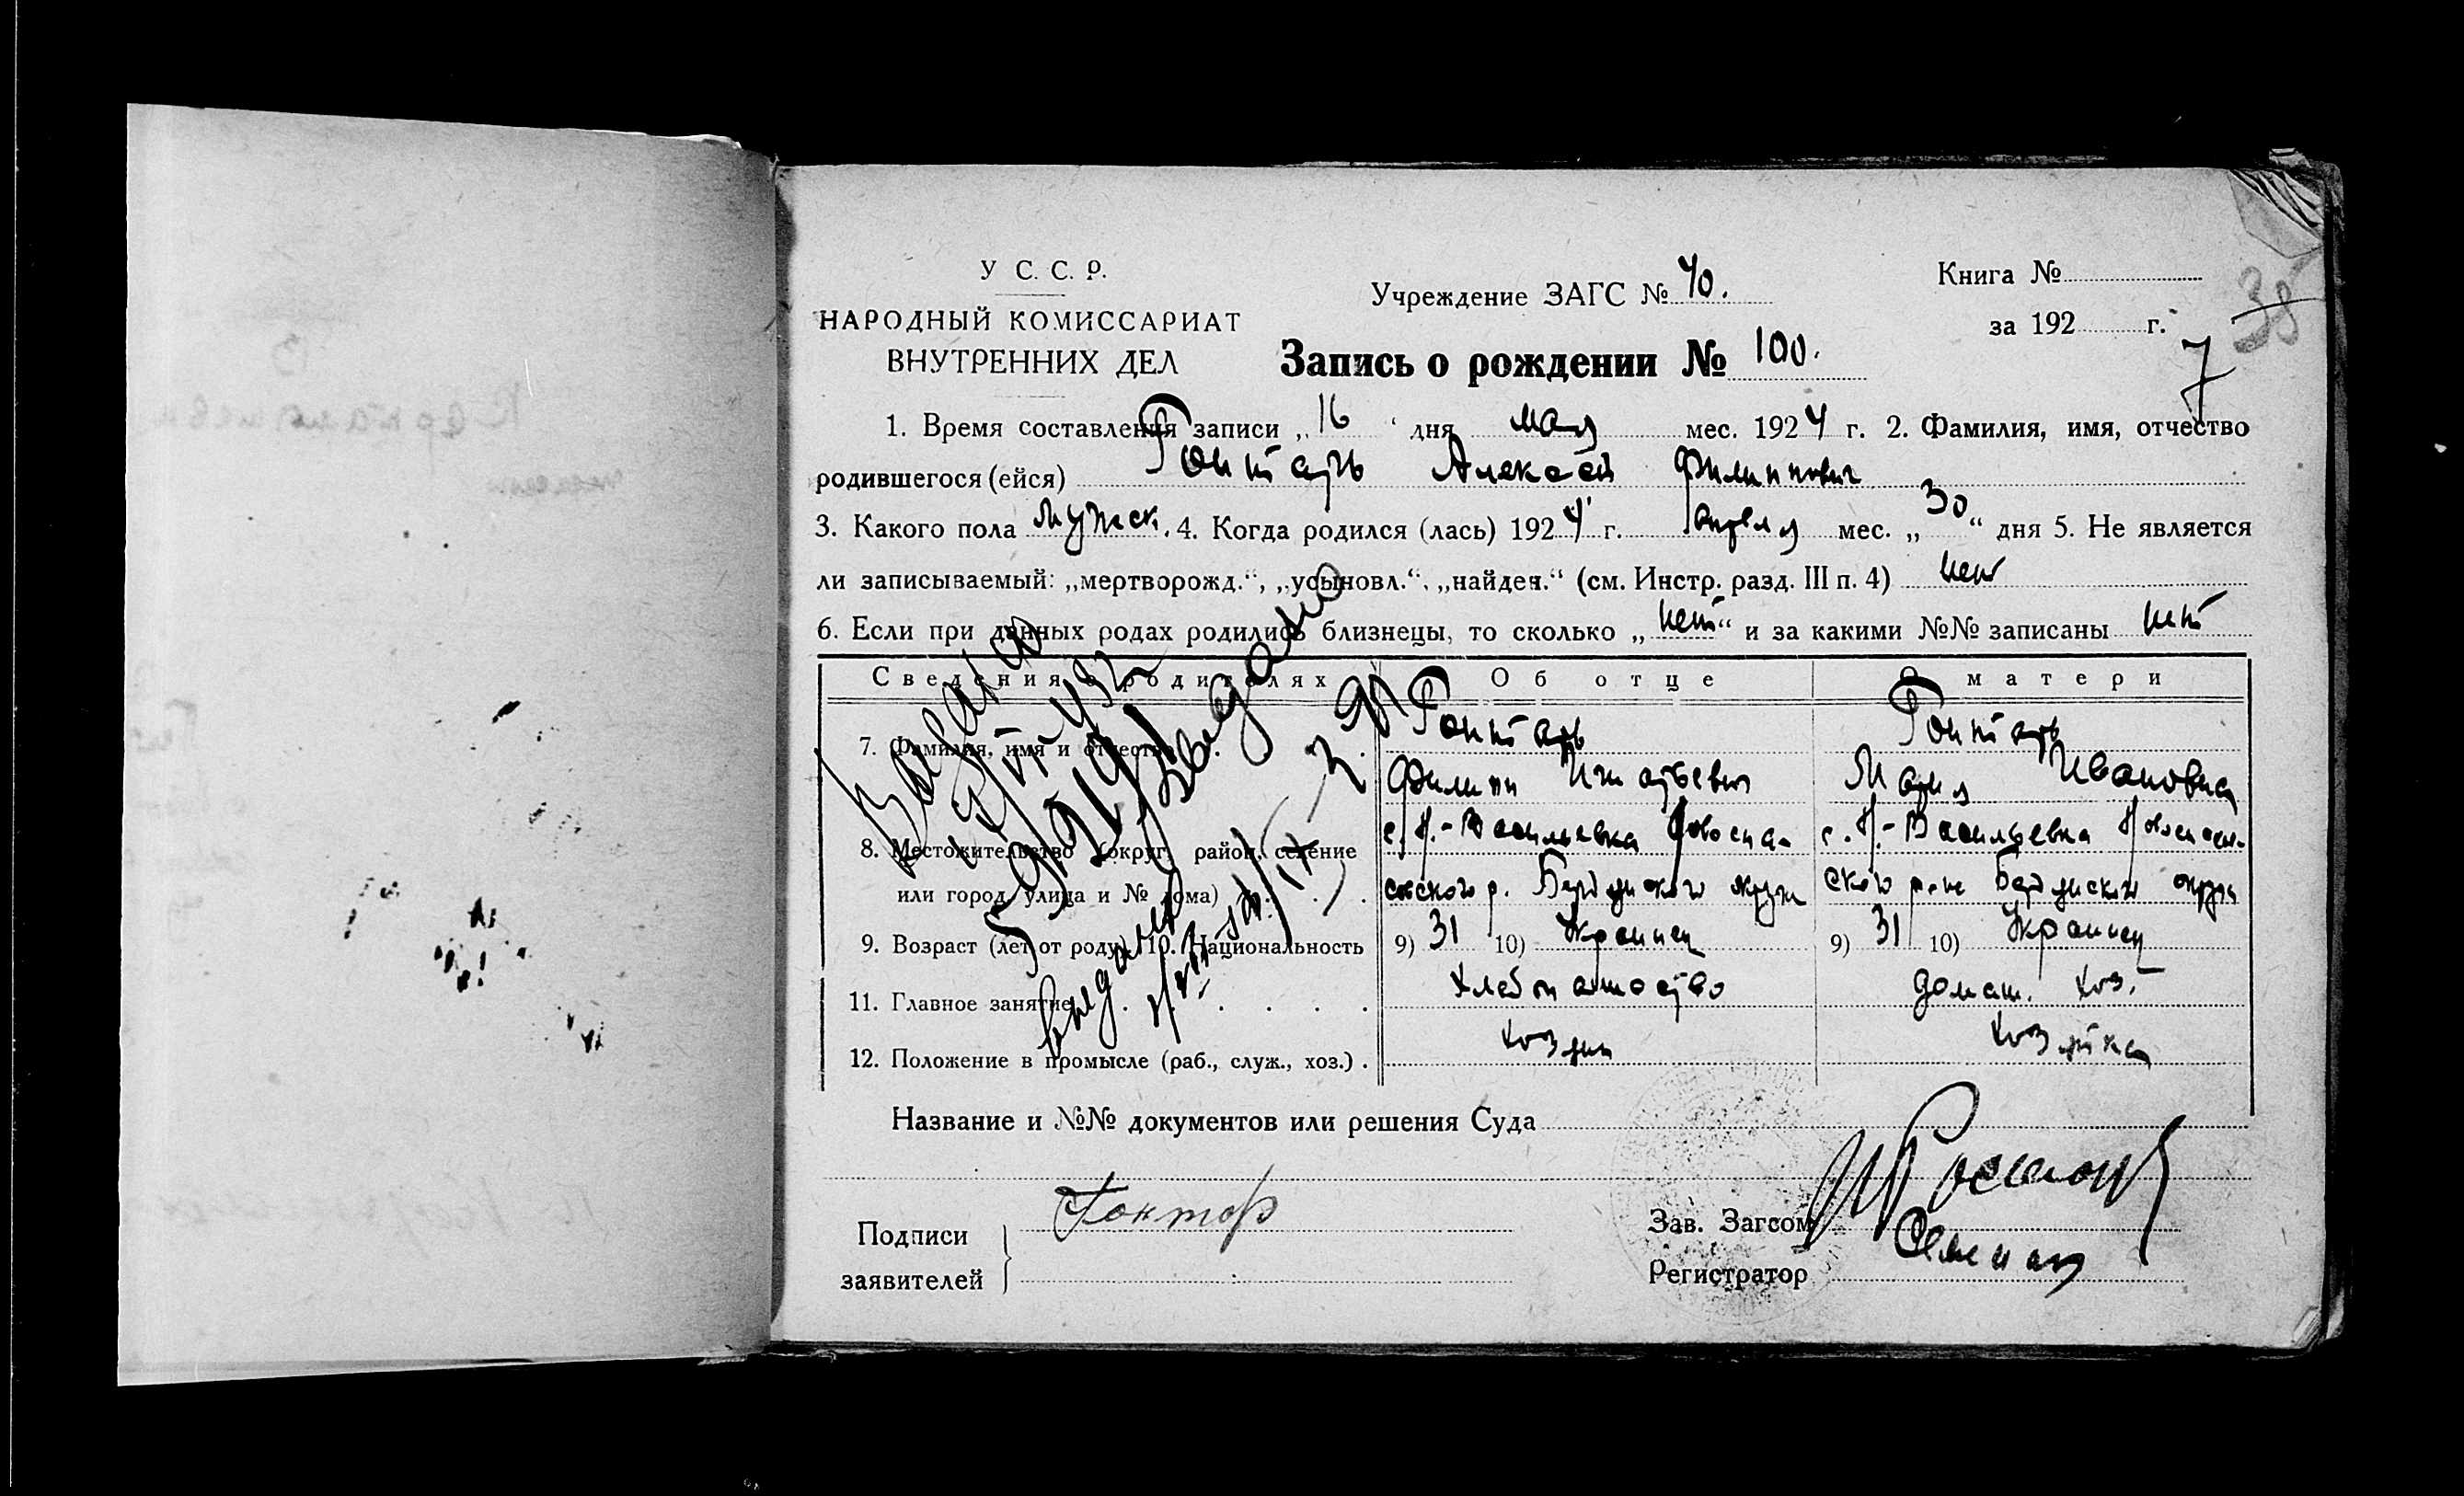 У С. С. Р.
НАРОДНЫЙ КОМИССАРИАТ
ВНУТРЕННИХ ДЕЛ
Учреждение ЗАГС № 40.
Книга №
за 192 г.
38
7
Запись о рождении № 100.
1. Время составления записи „16“ дня мая мес. 1924 г. 2. Фамилия, имя, отчество
родившегося (ейся) Гонтарь Алексей Филиппович
3. Какого пола мужск. 4. Когда родился (лась) 1924 г. апреля мес. „30“ дня 5. Не является
ли записываемый: „мертворожд.“, „усыновл.“, „найден.“ (см. Инстр. разд. III п. 4) нет
6. Если при данных родах родились близнецы, то сколько „нет“ и за какими №№ записаны нет
Сведения о родителях Об отце О матери
7. Фамилия, имя и отчество Гонтарь Гонтарь
Филипп Игнатьевич Мария Ивановна
8. Местожительство (округ, район, селение с. Н.-Васильевка Новоспа- с. Н.-Васильевка Новоспас-
или город, улица и № дома) сского р. Бердянского ского Бердянского
9. Возраст (лет от роду) 10. Национальность 9) 31 10) Украинец 9) 31 10) Украинец
11. Главное занятие хлебопашество домаш. хоз.
12. Положение в промысле (раб., служ., хоз.) хозяин хозяйка
Выдано
Выдано
Название и №№ документов или решения Суда
Подписи
заявителей
Зав. Загсом
Регистратор